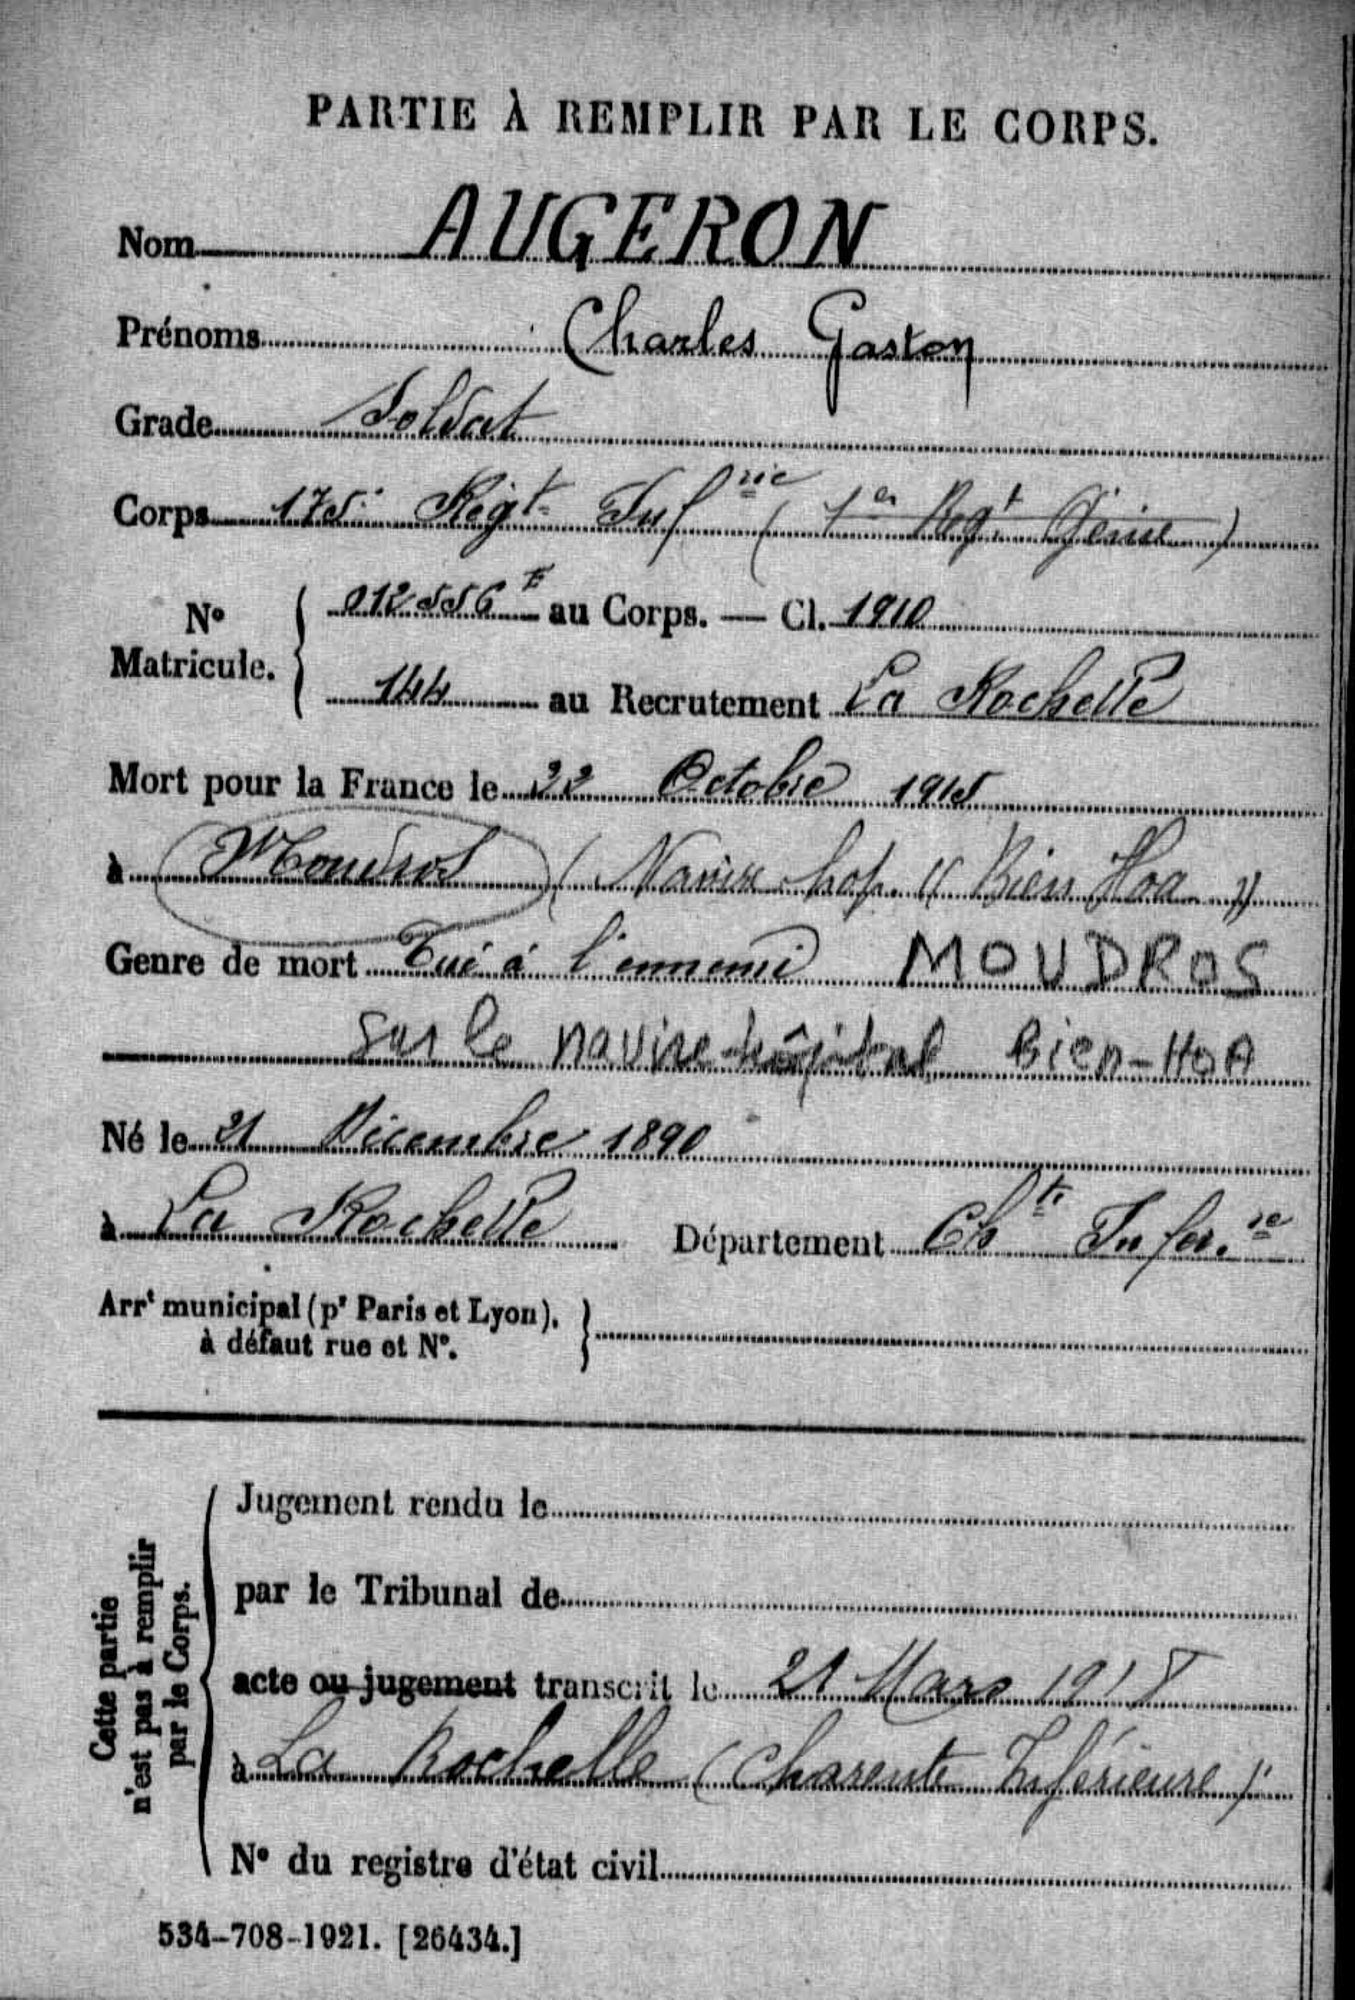 PARTIE À REMPLIR PAR LE CORPS.
Nom AUGERON
Prénoms Charles Gaston
Grade Soldat
Corps 175e Régt Infrie (1er Regt Génie)
No Matricule. 012556 au Corps. — Cl. 1910
144 au Recrutement La Rochelle
Mort pour la France le 22 Octobre 1915
à Moudros (Navire hop. "Bien Hoa")
Genre de mort Tué à l'ennemi MOUDROS
sur le navire-hôpital Bien-HOA
Né le 21 Décembre 1890
à La Rochelle Département Chte Inferre
Arrt municipal (pr Paris et Lyon),
à défaut rue et No.
Cette partie
n'est pas à remplir
par le Corps.
Jugement rendu le
par le Tribunal de
acte ou jugement transcrit le 21 Mars 1918
à La Rochelle (Charente Inférieure)
No du registre d'état civil
534-708-1921. [26434.]